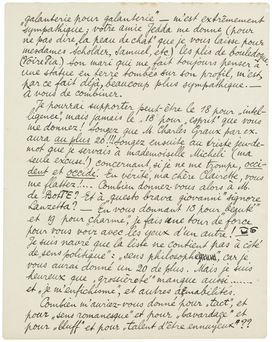 "galanterie pour galanterie" – m'est extrêmement
sympathique; votre amie Jadda me donne (pour
ne pas dire la peau de chat que je vous laisse pour
mesdames Scholder, Samuel, etc) les plus de
son mari qui me fait toujours penser à
une statue en terre bombée sur son profil, m'est,
par ce fait déjà, beaucoup plus sympathique. –
à vous de combiner.
Je pourrai supporter peut-être le 18 pour "intel-
ligence", mais jamais le 18 pour "esprit" que vous
me donnez! Songez que M. Charles Graux par ex.
aura au plus 26!!! Songez ensuite au triste jeu de
mot que je servais à mademoiselle Micheli (ma
seule excuse!) concernant, si je ne me trompe, occi-
dent et occidé. En vérité, ma chère Clairette, vous
me flattez!... Combien donnez-vous alors à M.
de BOTTE? Et à "questo bravo giovanni" signore
Lanzetta? En vous donnant 13 pour "équité"
et 19 pour charme, je fais une tors de force
pour vous voir avec les yeux d'un autre!
Je suis navré que la liste ne contient pas à côté
de "sens politique": "sens philosophique", car je
vous aurai donné un 20 de plus. Mais je suis
heureux que "grossièreté" manque aussi .....
et "je m'enfichisme", et autres amabilités.
Combien m'auriez-vous donné pour "tact", et
pour "sens romanesque" et pour "bavardage" et
pour "bluff" et pour "talent d'être ennuyeux"??